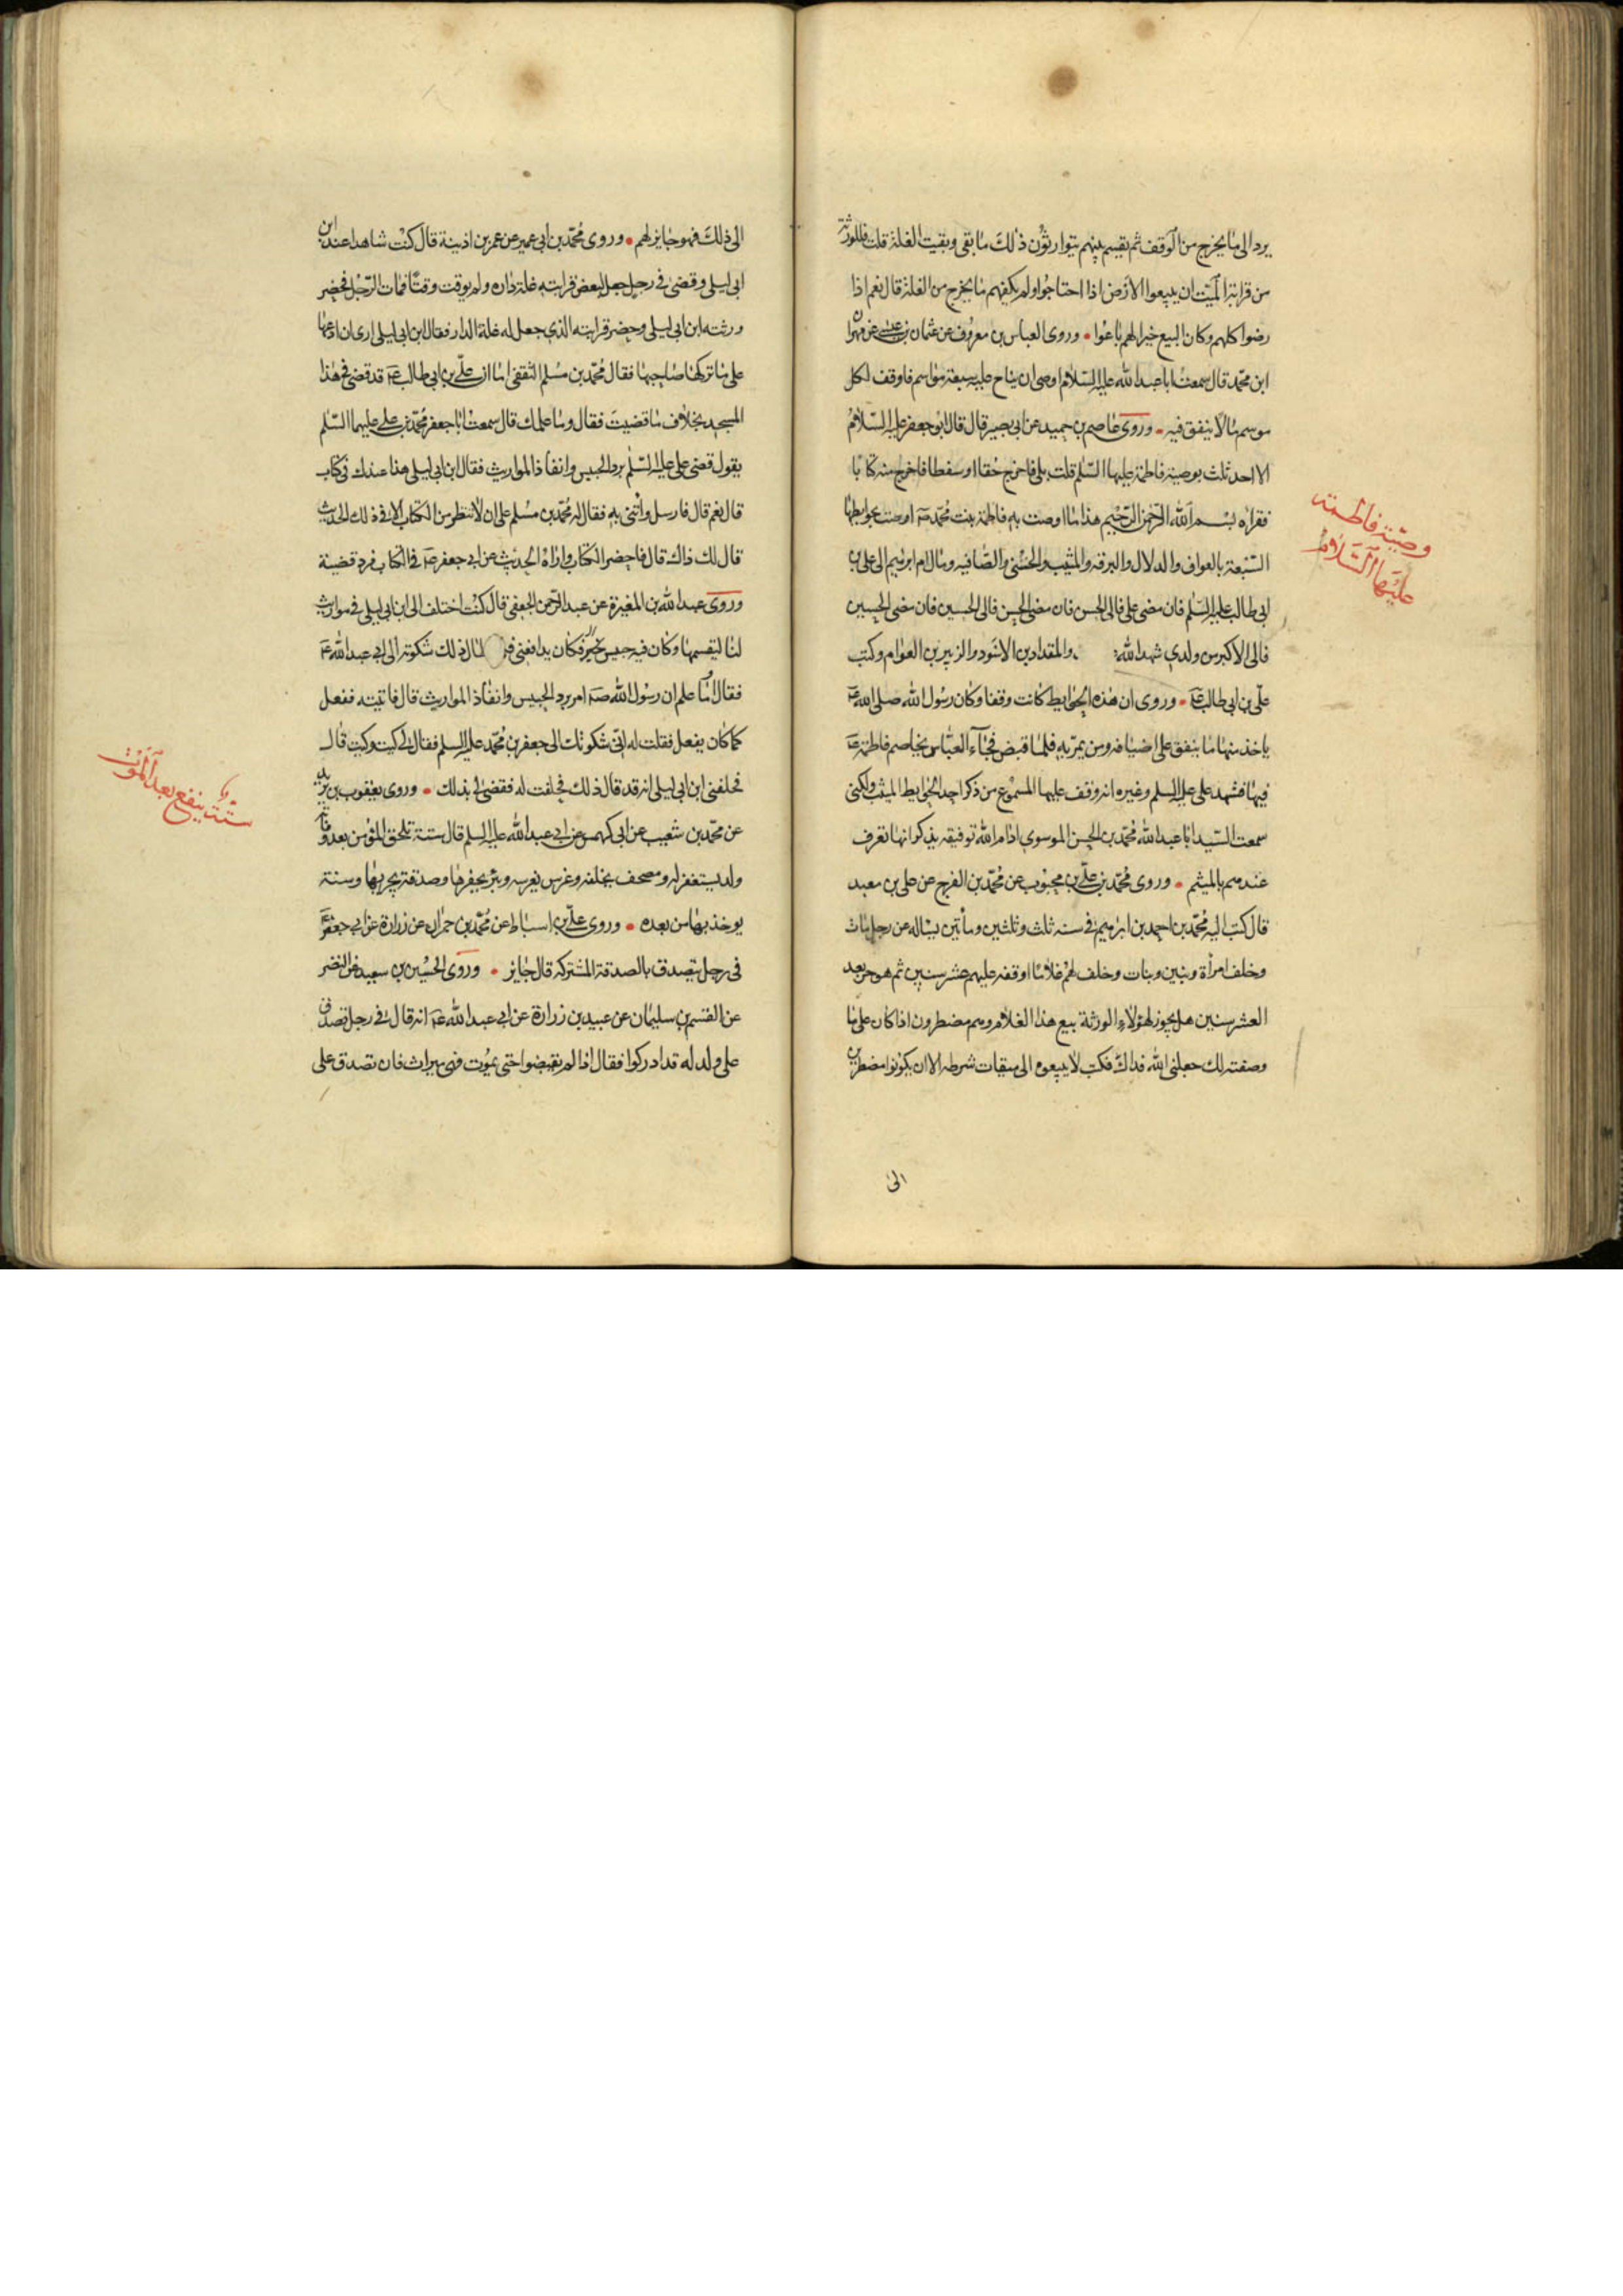 يرد الى ما يخرج من الوقف ثم يقسم بينهم يتوارثون ذلك ما بقى وبقيت الغلة قلت فللورثة
من قرابة الميت ان يبيعوا الارض اذا احتاجوا ولم يكفهم ما يخرج من الغلة قال نعم اذا
رضوا كلهم وكان البيع خيرا لهم باعوا • وروى العباس بن معروف عن عثمان بن عيسى عن مهران
ابن محمد قال سمعت ابا عبد الله عليه السلام اوصى ان يناح عليه سبعة مواسم فاوقف لكل
موسم مالا ينفق فيه • وروى عاصم بن حميد عن ابى بصير قال قال ابو جعفر عليه السلام
الا احدثك بوصية فاطمة عليها السلم قلت بلى فاخرج حقا او سفطا فاخرج منه كتابا
فقراه بسم الله الرحمن الرحيم هذا ما اوصت به فاطمة بنت محمد صم اوصت بحوايطها
السبعة بالعواف والدلال والبرقه والمثيب والحسنى والصافيه ومال ام ابرهيم الى على بن
ابى طالب عليه السلم فان مضى على فالى الحسن فان مضى الحسن فالى الحسين فان مضى الحسين
فالى الاكبر من ولدى شهد الله والمقداد بن الاسود والزبير بن العوام وكتب
على بن ابى طالب عم • وروى ان هذه الحوايط كانت وقفا وكان رسول الله صلى الله عم
ياخذ منها ما ينفق على اضيافه ومن يمر به فلما قبض فجاء العباس يخاصم فاطمة عم
فيها فشهد على عليه السلم وغيره انه وقف عليها المسموع من ذكر احد الحوايط الميثب ولكنى
سمعت السيد ابا عبد الله محمد بن الحسن الموسوى ادام الله توفيقه يذكر انها تعرف
عندهم بالميثم • وروى محمد بن على بن محبوب عن محمد بن الفرج عن على بن معبد
قال كتب اليه محمد بن احمد بن ابرهيم فى سنه ثلث وثلثين ومأتين يساله عن رجل مات
وخلف امرأة وبنين وبنات وخلف لهم غلاما اوقفه عليهم عشر سنين ثم هو حر بعد
العشر سنين هل يجوز لهؤلاء الورثة بيع هذا الغلام وهم مضطرون اذا كان على ما
وصفته لك جعلنى الله فداك فكتب لا يبيعوه الى ميقات شرطه الا ان يكونوا مضطرين
الى
وصية فاطمة
عليها السلام
الى ذلك فهو جايز لهم • وروى محمد بن ابى عمير عن عمر بن اذينة قال كنت شاهدا عند ابن
ابى ليلى وقضى فى رجل جعل لبعض قرابته غلة داره ولم يوقت وقتا فمات الرجل فحضر
ورثته ابن ابى ليلى وحضر قرابته الذى جعل له غلة الدار فقال ابن ابى ليلى ارى ان ادعها
على ما تركها صاحبها فقال محمد بن مسلم الثقفى اما ان على بن ابى طالب عم قد قضى فى هذا
المسجد بخلاف ما قضيت فقال وما علمك قال سمعت ابا جعفر محمد بن على عليهما السلم
يقول قضى على عليه السلم برد الحبيس وانفاذ المواريث فقال ابن ابى ليلى هذا عندك فى كتاب
قال نعم قال فارسل وائتنى به فقال له محمد بن مسلم على ان لا تنظر من الكتاب الا فى ذلك الحديث
قال لك ذاك قال فاحضر الكتاب واراه الحديث عن ابى جعفر عم فى الكتاب فرد قضيته
وروى عبد الله بن المغيرة عن عبد الرحمن الجعفى قال كنت اختلف الى ابن ابى ليلى فى مواريث
لنا ليقسمها وكان فيه حبيس فكان يدافعنى طال ذلك شكوته الى ابى عبد الله عم
فقال اوما علم ان رسول الله صم امر برد الحبيس وانفاذ المواريث قال فاتيته ففعل
كما كان يفعل فقلت له انى شكوتك الى جعفر بن محمد عليه السلم فقال لى كيت وكيت قال
فحلفنى ابن ابى ليلى انه قد قال ذلك فحلفت له فقضى لى بذلك • وروى يعقوب بن يزيد
عن محمد بن شعيب عن ابى كهمس عن ابى عبد الله عليه السلم قال ستة تلحق المؤمن بعد وفاته
ولد يستغفر له ومصحف يخلفه وغرس يغرسه وبئر يحفرها وصدقة يجريها وسنة
يوخذ بها من بعده • وروى على بن اسباط عن محمد بن حمران عن زرارة عن ابى جعفر عم
فى رجل يتصدق بالصدقة المشتركه قال جايز • وروى الحسين بن سعيد عن النضر
عن القسم بن سليمان عن عبيد بن زرارة عن ابى عبد الله عم انه قال فى رجل تصدق
على ولد له قد ادركوا فقال اذا لم يقبضوا حتى يموت فهى ميراث فان تصدق على
ستة ينفع بعد الموت